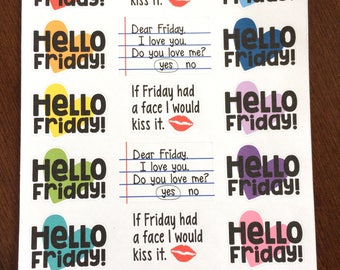 kiss it.
HELLO
Friday!
Dear Friday,
I love you.
Do you love me?
yes no
HELLO
Friday!
HELLO
Friday!
If Friday had
a face I would
kiss it.
HELLO
Friday!
HELLO
Friday!
Dear Friday,
I love you.
Do you love me?
yes no
HELLO
Friday!
HELLO
Friday!
If Friday had
a face I would
kiss it.
HELLO
Friday!